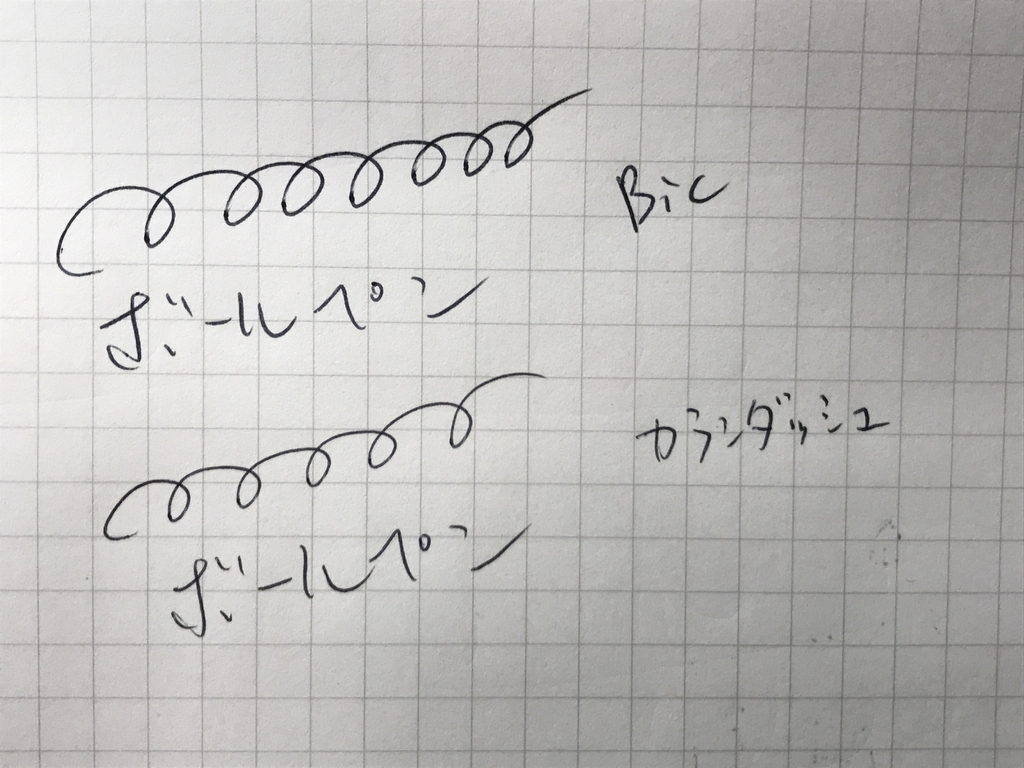 Bic
ボールペン
カランダッシュ
ボールペン